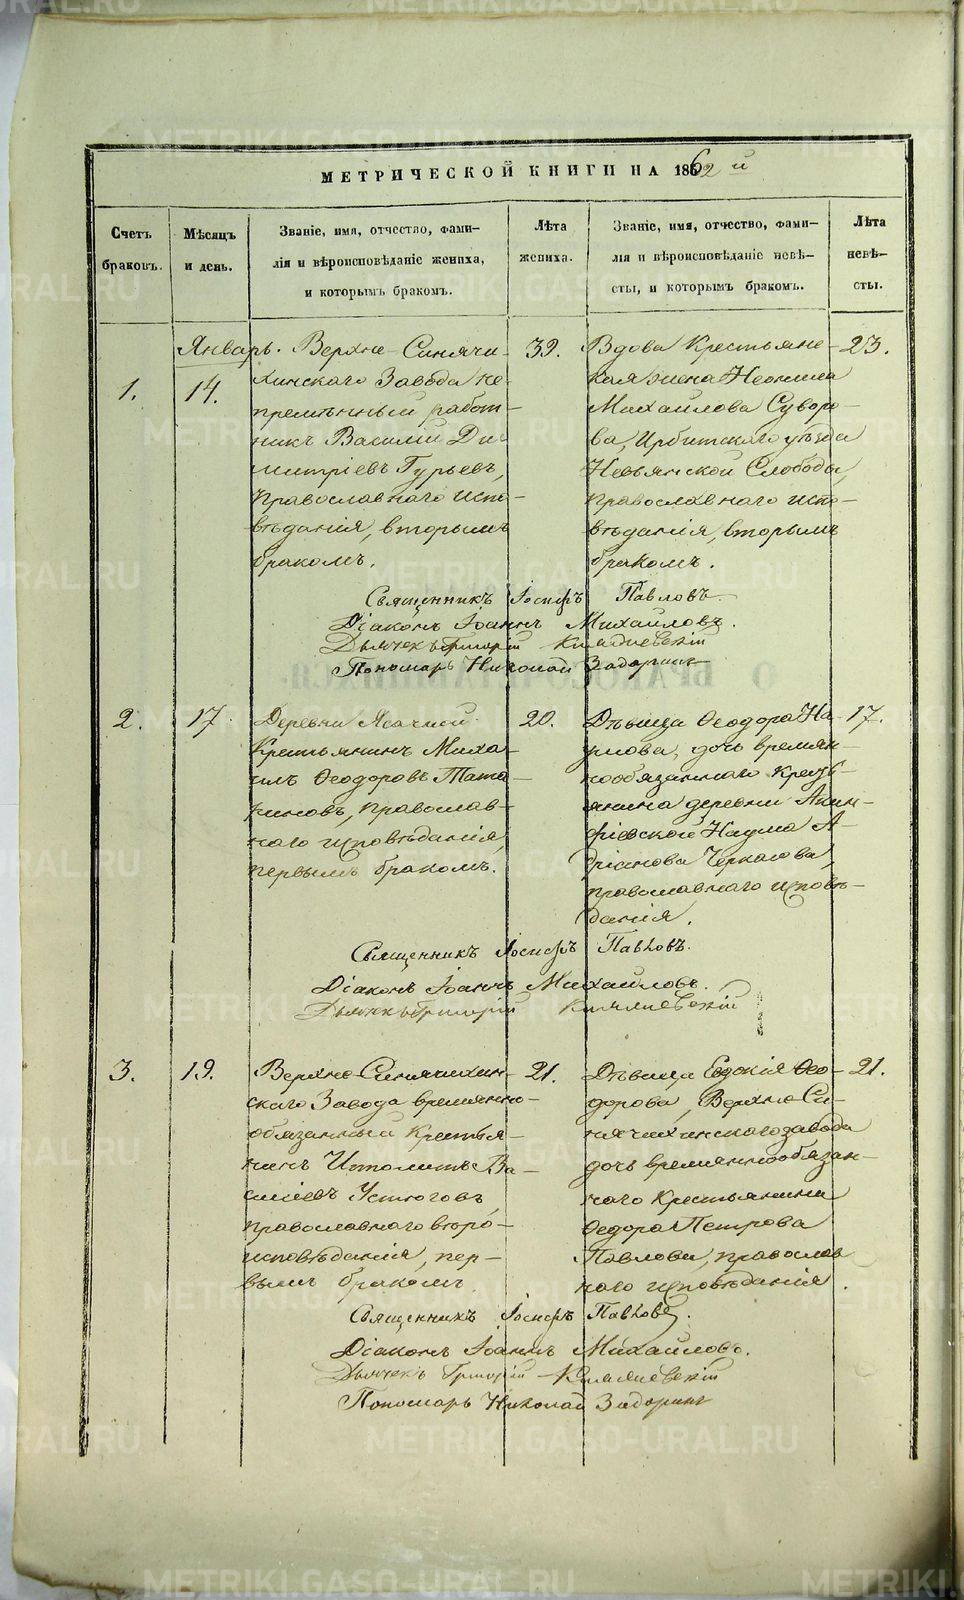 МЕТРИЧЕСКОЙ КНИГИ НА 1862 й
Счетъ браковъ.
Мѣсяцъ и день.
Званіе, имя, отчество, фами-
лія и вѣроисповѣданіе жениха,
и которымъ бракомъ.
Лѣта жениха.
Званіе, имя, отчество, фами-
лія и вѣроисповѣданіе невѣ-
сты, и которымъ бракомъ.
Лѣта невѣ-
сты.
Январь.
1.
14.
Верхне-Синячи-
хинскаго Завода не-
премѣнный работ-
никъ Василій Ди-
митріевъ Гурьевъ,
православнаго испо-
вѣданія, вторымъ
бракомъ.
39.
Вдова Крестьянс-
кая жена Неонила
Михайлова Суворо-
ва, Ирбитскаго уѣзда
Невьянской Слободы,
православнаго испо-
вѣданія, вторымъ
бракомъ.
23.
Священникъ Іосифъ Павловъ.
Діаконъ Іоаннъ Михайловъ.
Дьячекъ Григорій
Пономарь Николай Задоринъ
2.
17.
Деревни Ясачной
Крестьянинъ Миха-
илъ Ѳеодоровъ Тата-
риновъ, православ-
наго исповѣданія,
первымъ бракомъ.
20.
Дѣвица Ѳеодора На-
умова, дочь времян-
нообязаннаго кресть-
янина деревни Акин-
фіевской Наума А-
дріанова Черкасова,
православнаго исповѣ-
данія.
17.
Священникъ Іосифъ Павловъ.
Діаконъ Іоаннъ Михайловъ.
Дьячекъ Григорій
3.
19.
Верхне-Синячихин-
скаго Завода времянно-
обязанный Крестья-
нинъ Ипполитъ Ва-
силіевъ Устюговъ,
православнаго вѣро-
исповѣданія, пер-
вымъ бракомъ
21.
Дѣвица Евдокія Ѳео-
дорова, Верхне-Си-
нячихинскаго завода
дочь времяннообязан-
наго Крестьянина
Ѳедора Петрова
Павлова, православ
наго исповѣданія.
21.
Священникъ Іосифъ Павловъ.
Діаконъ Іоаннъ Михайловъ.
Дьячекъ Григорій
Пономарь Николай Задоринъ
METRIKI.GASO-URAL.RU